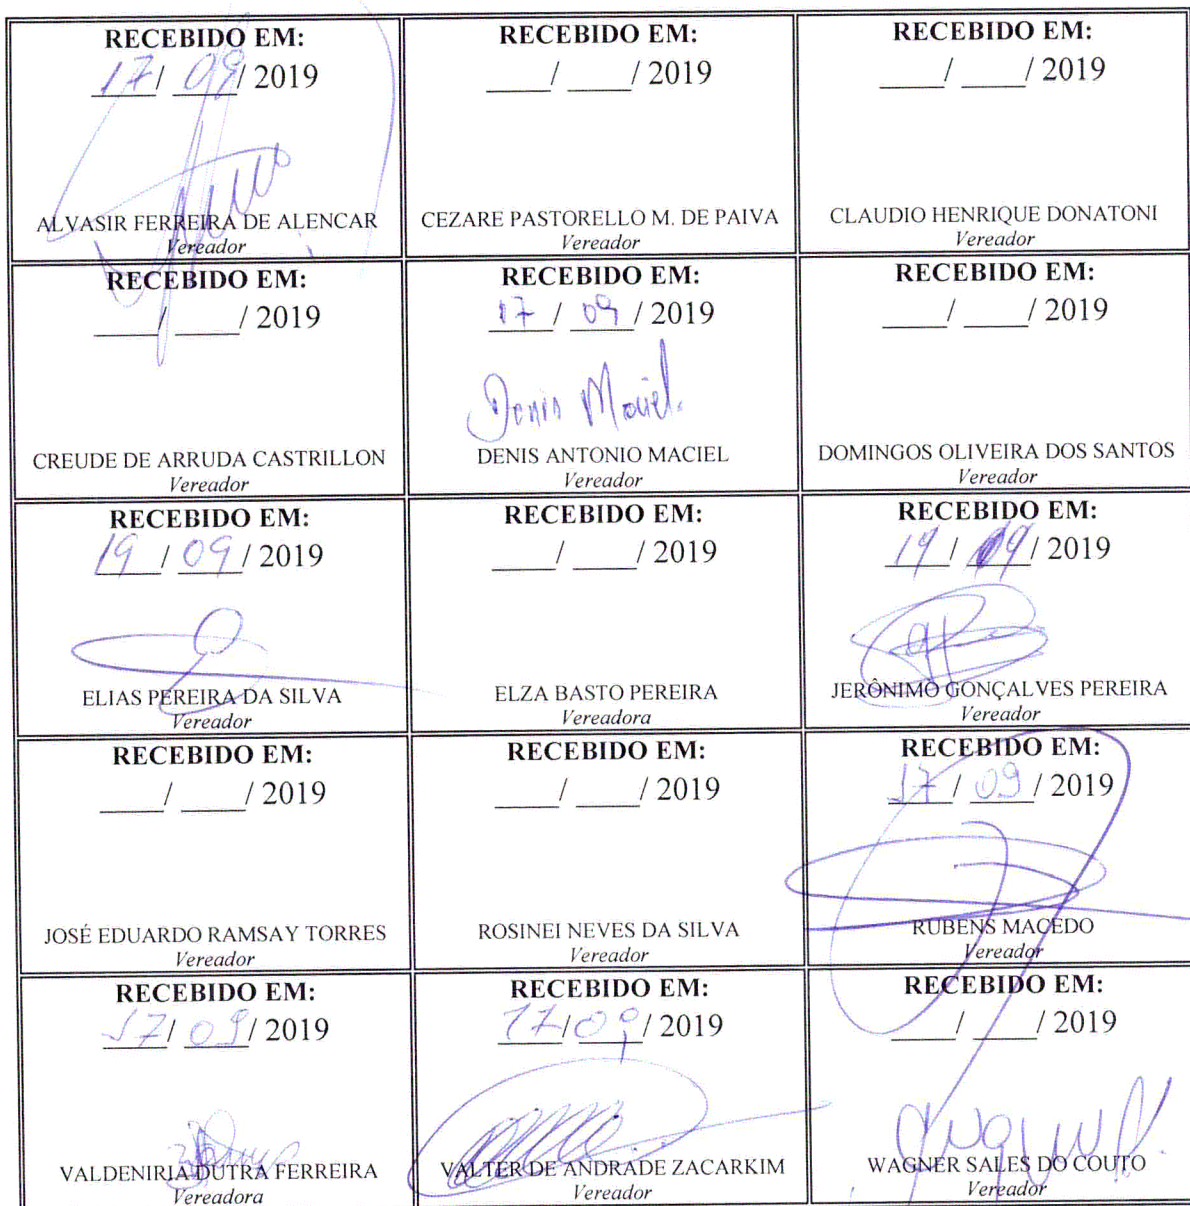 RECEBIDO EM:
17/ 09/ 2019
ALVASIR FERREIRA DE ALENCAR
Vereador
RECEBIDO EM:
____/ ____/ 2019
CEZARE PASTORELLO M. DE PAIVA
Vereador
RECEBIDO EM:
____/ ____/ 2019
CLAUDIO HENRIQUE DONATONI
Vereador
RECEBIDO EM:
____/ ____/ 2019
CREUDE DE ARRUDA CASTRILLON
Vereador
RECEBIDO EM:
17/ 09/ 2019
Denis Maciel.
DENIS ANTONIO MACIEL
Vereador
RECEBIDO EM:
____/ ____/ 2019
DOMINGOS OLIVEIRA DOS SANTOS
Vereador
RECEBIDO EM:
19/ 09/ 2019
ELIAS PEREIRA DA SILVA
Vereador
RECEBIDO EM:
____/ ____/ 2019
ELZA BASTO PEREIRA
Vereadora
RECEBIDO EM:
19/ 09/ 2019
JERÔNIMO GONÇALVES PEREIRA
Vereador
RECEBIDO EM:
____/ ____/ 2019
JOSÉ EDUARDO RAMSAY TORRES
Vereador
RECEBIDO EM:
____/ ____/ 2019
ROSINEI NEVES DA SILVA
Vereador
RECEBIDO EM:
17/ 09/ 2019
RUBENS MACEDO
Vereador
RECEBIDO EM:
17/ 09/ 2019
VALDENIRIA DUTRA FERREIRA
Vereadora
RECEBIDO EM:
17/ 09/ 2019
VALTER DE ANDRADE ZACARKIM
Vereador
RECEBIDO EM:
____/ ____/ 2019
WAGNER SALES DO COUTO
Vereador